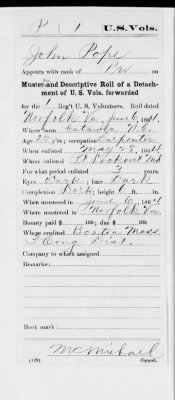 P | 1 | U.S. Vols.
John Pope
Appears with rank of Pvt on
Muster and Descriptive Roll of a Detach-
ment of U. S. Vols. forwarded
for the 1 Reg't U. S. Volunteers. Roll dated
Norfolk Va. June 6, 1864.
Where born Catawba N.C.
Age 22 y'rs; occupation Carpenter
When enlisted May 28, 1864.
Where enlisted Pt Lookout Md
For what period enlisted 3 years.
Eyes ; hair Dark
Complexion Dark; height 6 ft. in.
When mustered in June 6, 1864
Where mustered in Norfolk Va.
Bounty paid $ 100; due $ 100
Where credited Boston Mass
Cong Dist.
Company to which assigned
Remarks:
Book mark:
McMichael
(339) Copyist.